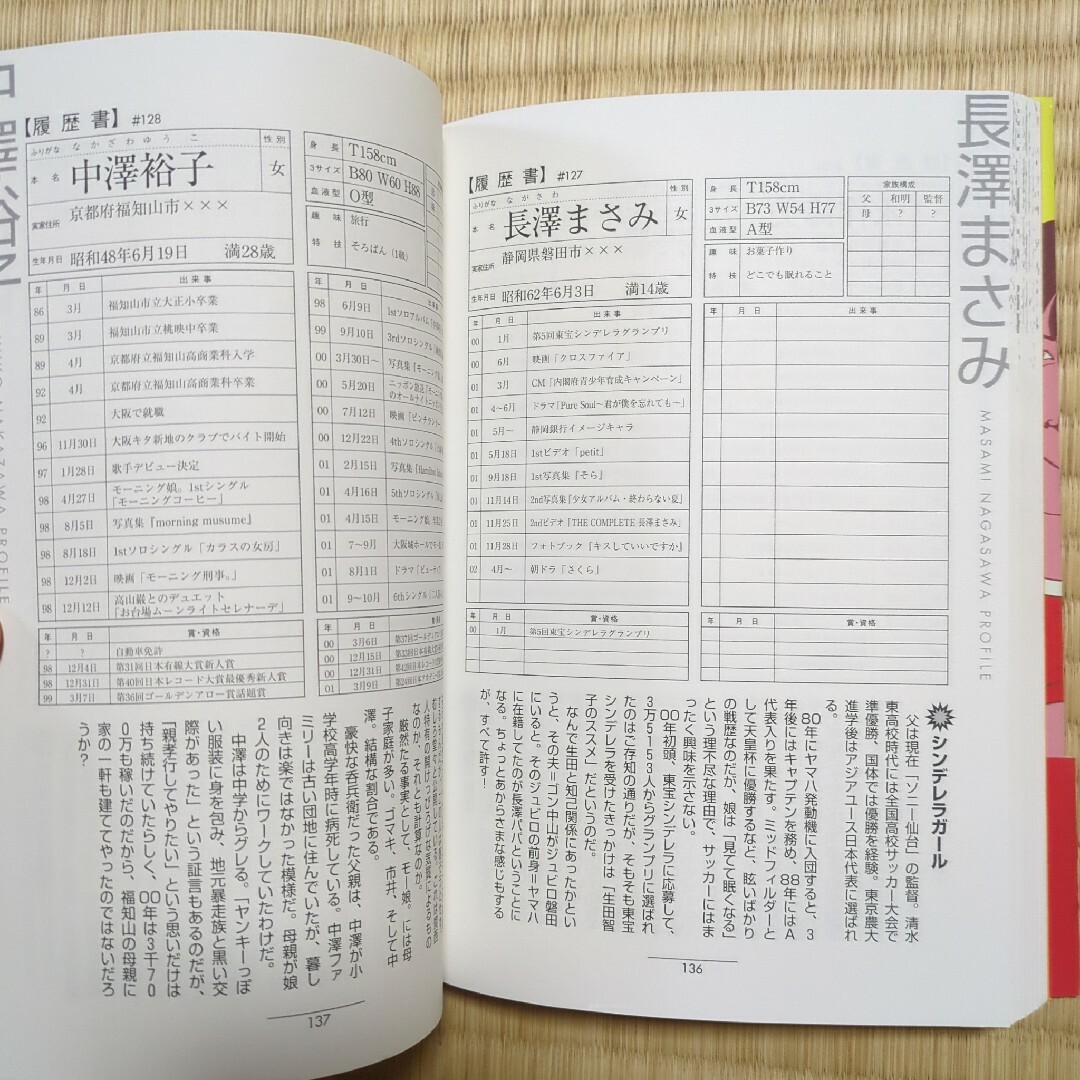 長澤まさみ
MASAMI NAGASAWA PROFILE
【履歴書】 #127
ふりがな ながさわ
本名 長澤まさみ
性別 女
実家住所 静岡県磐田市×××
生年月日 昭和62年6月3日 満14歳
身長 T158cm
3サイズ B73 W54 H77
血液型 A型
趣味 お菓子作り
特技 どこでも眠れること
家族構成
父 和明 監督
母 ? ?
年 月日 出来事
00 1月 第5回東宝シンデレラグランプリ
00 6月 映画「クロスファイア」
01 3月 CM「内閣府青少年育成キャンペーン」
01 4〜6月 ドラマ「Pure Soul〜君が僕を忘れても〜」
01 5月〜 静岡銀行イメージキャラ
01 5月18日 1stビデオ「petit」
01 9月18日 1st写真集『そら』
01 11月14日 2nd写真集『少女アルバム・終わらない夏』
01 11月25日 2ndビデオ『THE COMPLETE 長澤まさみ』
01 11月28日 フォトブック『キスしていいですか』
02 4月〜 朝ドラ「さくら」
年 月日 賞・資格
00 1月 第5回東宝シンデレラグランプリ
年 月日 出来事
年 月日 賞・資格
シンデレラガール
父は現在「ソニー仙台」の監督。清水
東高校時代には全国高校サッカー大会で
準優勝、国体では優勝を経験。東京農大
進学後はアジアユース日本代表に選ばれ
る。
80年にヤマハ発動機に入団すると、3
年後にはキャプテンを務め、88年にはA
代表入りを果たす。ミッドフィルダーと
して天皇杯に優勝するなど、眩いばかり
の戦歴なのだが、娘は「見てて眠くなる」
という理不尽な理由で、サッカーにはま
ったく興味を示さない。
00年初頭、東宝シンデレラに応募して、
3万5153人からグランプリに選ばれ
たのはご存知の通りだが、そもそも東宝
シンデレラを受けたきっかけは「生田智
子のススメ」だというのだ。
なんで生田と知己関係にあったかとい
うと、その夫＝ゴン中山がジュビロ磐田
にいると。そのジュビロの前身＝ヤマハ
に在籍してたのが長澤パパということに
なる。ちょっとあからさまな感じもする
が、すべて許す！
136
【履歴書】 #128
ふりがな なかざわゆうこ
本名 中澤裕子
性別 女
実家住所 京都府福知山市×××
生年月日 昭和48年6月19日 満28歳
身長 T158cm
3サイズ B80 W60 H88
血液型 O型
趣味 旅行
特技 そろばん(1級)
年 月日 出来事
86 3月 福知山市立大正小卒業
89 3月 福知山市立桃映中卒業
89 4月 京都府立福知山高商業科入学
92 4月 京都府立福知山高商業科卒業
92 大阪で就職
96 11月30日 大阪キタ新地のクラブでバイト開始
97 1月28日 歌手デビュー決定
98 4月27日 モーニング娘。1stシングル
「モーニングコーヒー」
98 8月5日 写真集『morning musume』
98 8月18日 1stソロシングル「カラスの女房」
98 12月2日 映画「モーニング刑事。」
98 12月12日 高山厳とのデュエット
「お台場ムーンライトセレナーデ」
年 月日 賞・資格
? ? 自動車免許
98 12月4日 第31回日本有線大賞新人賞
98 12月31日 第40回日本レコード大賞最優秀新人賞
99 3月7日 第36回ゴールデンアロー賞話題賞
98 6月9日 1stソロアルバム
99 9月10日 3rdソロシングル
00 3月30日〜 写真集「モーニング
00 5月20日 ニッポン放送「モーニ
のオールナイトニッポ
00 7月12日 映画「ピンチランナー
00 12月22日 4thソロシングル
01 2月15日 写真集「
01 4月16日 5thソロシングル
01 4月15日 モーニング娘。
01 7〜9月 大阪城ホールで
01 8月1日 ドラマ「ビューティ
01 9〜10月 6thシングル「二人
00 3月6日 第37回ゴールデン
00 12月15日 第33回日本有線
00 12月31日 第42回日本レコード
01 3月9日 第24回日本アカデミー
人特有の開けっぴろげな気質によるもの
なのか、それとも計算なのか。
厳然たる事実として、モー娘。には母
子家庭が多い。ゴマキ、市井、そして中
澤。結構な割合である。
豪快な呑兵衛だった父親は、中澤が小
学校高学年時に病死している。中澤ファ
ミリーは古い団地に住んでいたが、暮し
向きは楽ではなかった模様だ。母親が娘
2人のためにワークしていたわけだ。
中澤は中学からグレる。「ヤンキーっぽ
い服装に身を包み、地元暴走族と黒い交
際があった」という証言もあるのだが、
「親孝行してやりたい」という思いだけは
持ち続けていたらしく、00年は3千70
0万も稼いだのだから、福知山の母親に
家の一軒も建ててやったのではないだろ
うか？
137